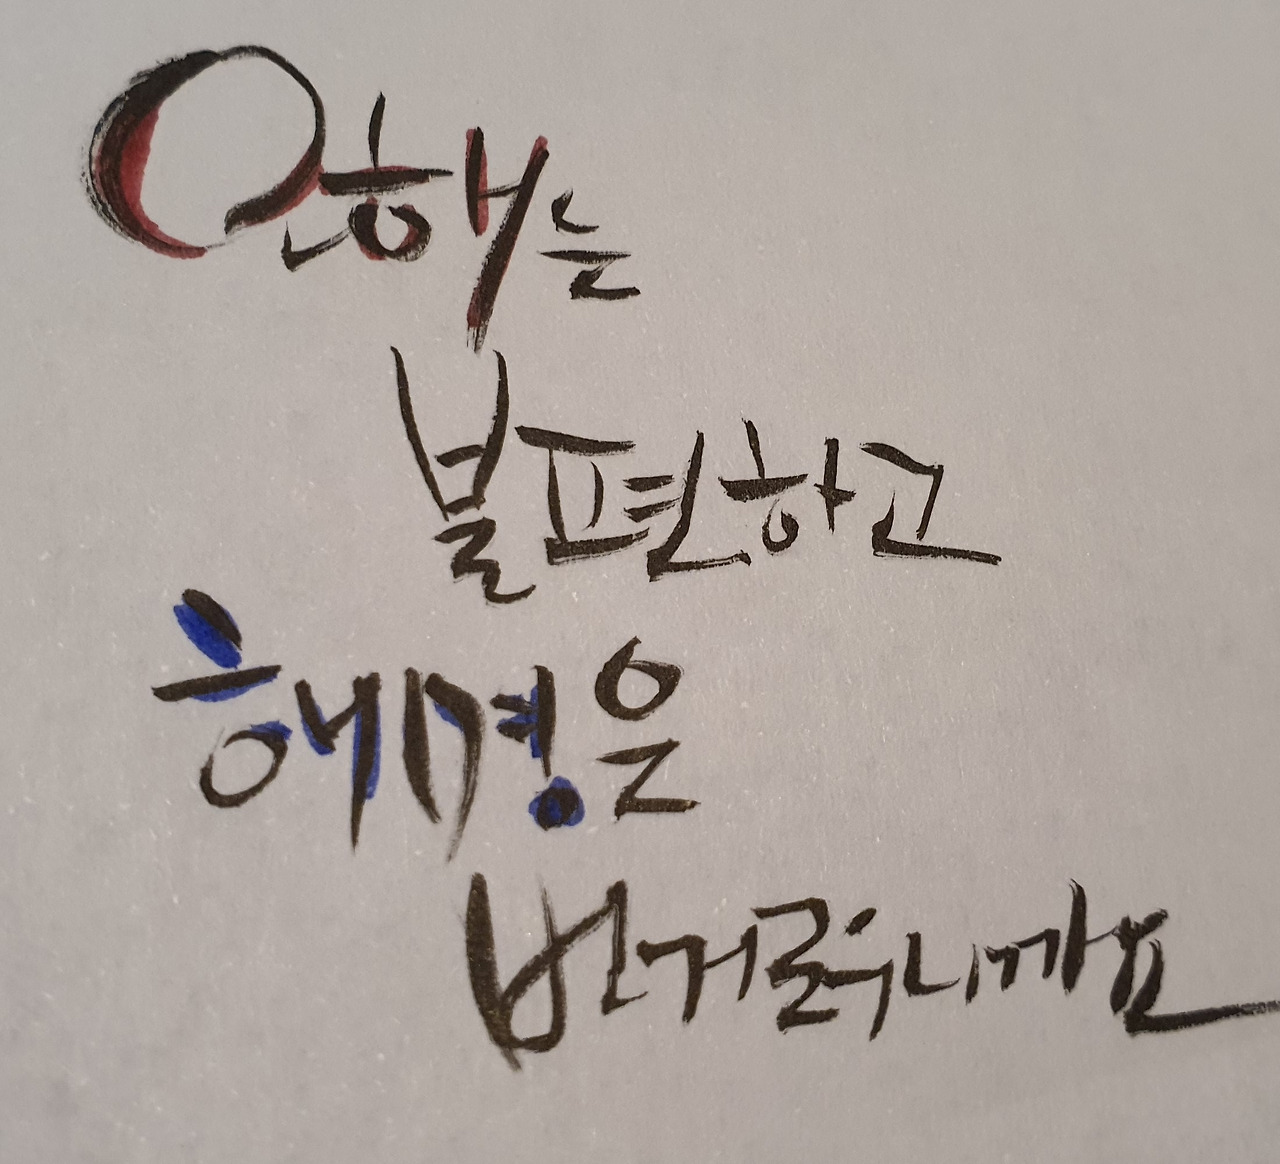 오해는
불편하고
해명은
번거로우니까요